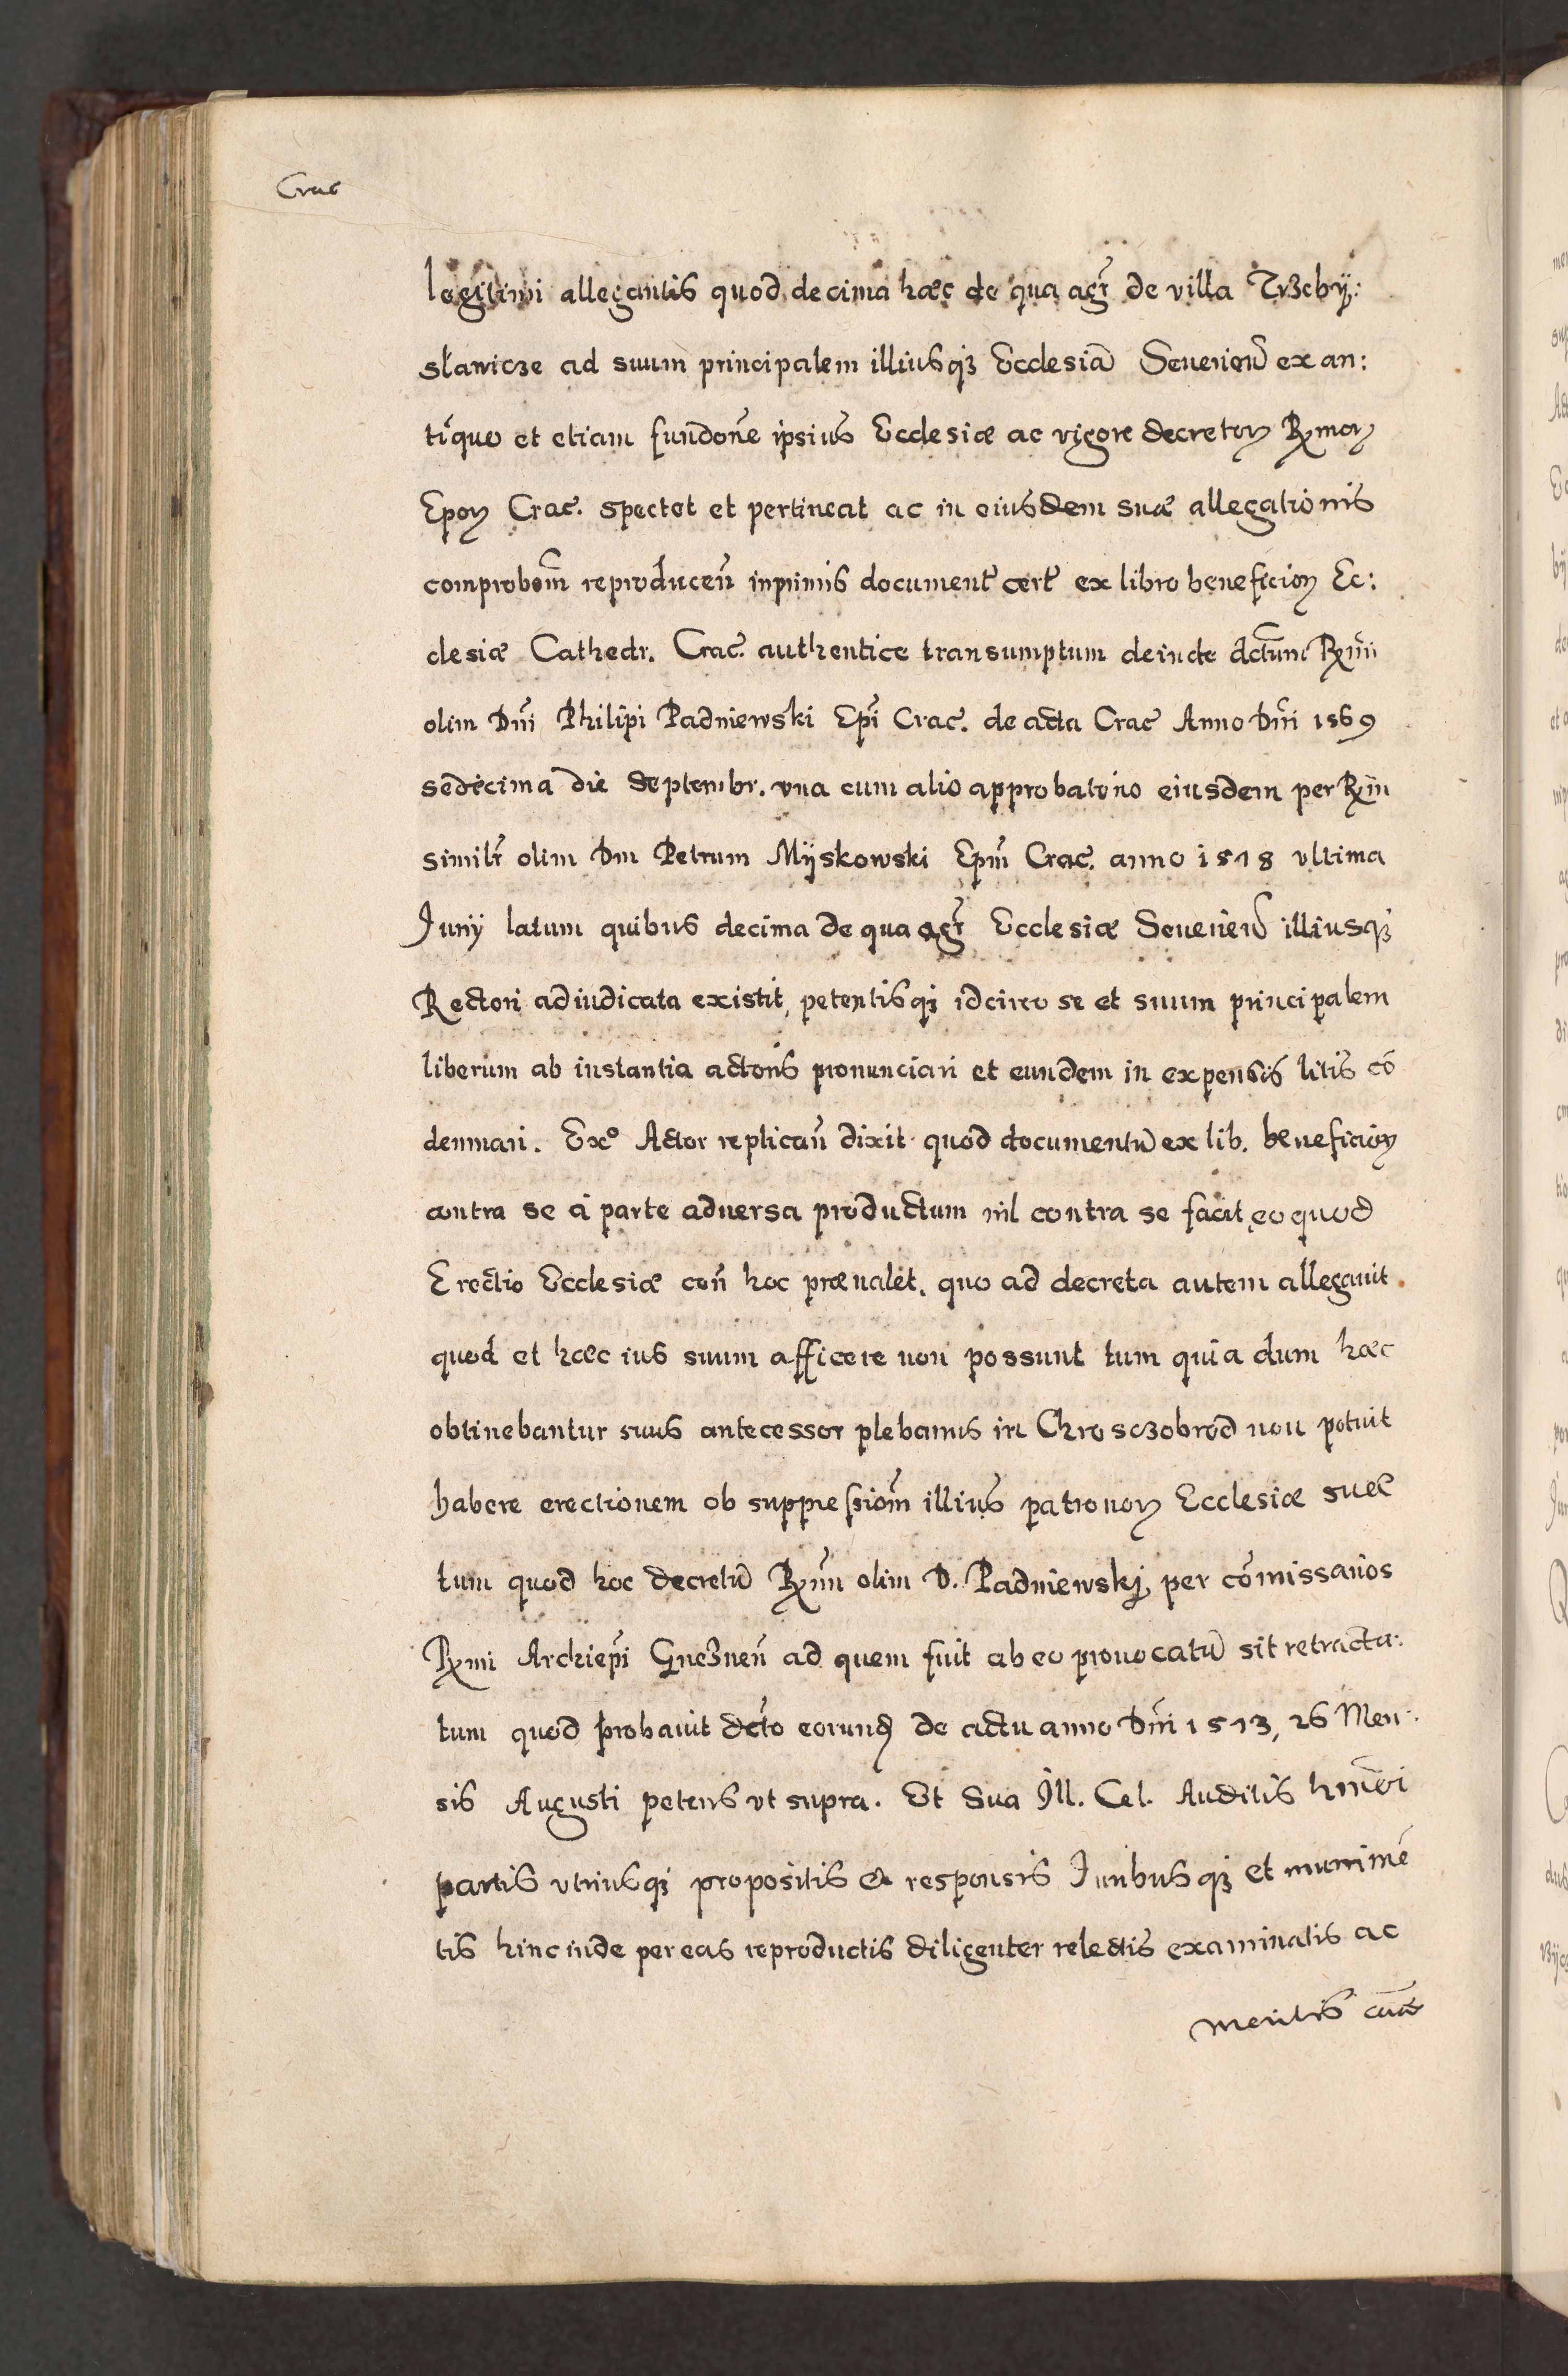 Crac
legitimi allegantis quod decima hæc de qua agr̃ de villa Trzebÿ:
sławicze ad suum principalem illiusq₃ Ecclesiā Seuerien̄ ex an:
tiquo et etiam fundōne ipsius Ecclesiæ ac vigore decretorꝝ Rxmorꝝ
Eporꝝ Crac. spectet et pertineat ac in eiusdem suæ allegationis
comprobōm reproducen̄ inprimis document̃ cert̃ ex libro beneficiorꝝ Ec:
clesiæ Cathedr. Crac. authentice transumptum deinde dctum Rxmi
olim Dñi Philipi Padniewski Epĩ Crac. de acta Crac Anno Dñi 1569
sedecima die Septembr. vna cum alio approbatorio eiusdem per Rxm̃
similr̃ olim Dm Petrum Mÿskowski Epm̃ Crac. anno 1578 vltima
Junÿ latum quibus decima de qua agr̃ Ecclesiæ Seuerien̄ illiusq₃
Rectori adiudicata existit, petentisq₃ idcirco se et suum principalem
liberum ab instantia actoris pronunciari et eundem in expensis litis cō
demnari. Exº Actor replicañ dixit quod documentū ex lib. beneficiorꝝ
contra se à parte aduersa productum nil contra se facit, eo quod
Erectio Ecclesiæ coñ hoc præualet, quo ad decreta autem allegauit
quod et hæc ius suum afficere non possunt tum quia dum hæc
obtinebantur suus antecessor plebanus in Chrosczobrod non potuit
habere erectionem ob suppressiom̃ illius patronorꝝ Ecclesiæ suæ
tum quod hoc decretū Rxmi olim D. Padniewskj per cōmissarios
Rxmi Archiepĩ Gneznen̄ ad quem fuit ab eo prouocatū sit retracta:
tum quod probauit dcto eorund̃ de actu anno Dñi 1573, 26 Men:
sis Augusti petens vt supra. Et Sua Jll. Cel. Auditis hm̃oi
partis vtriusq₃ propositis & responsis Juribusq₃ et munimē
tis hinc inde per eas reproductis diligenter relectis examinatis ac
meritis